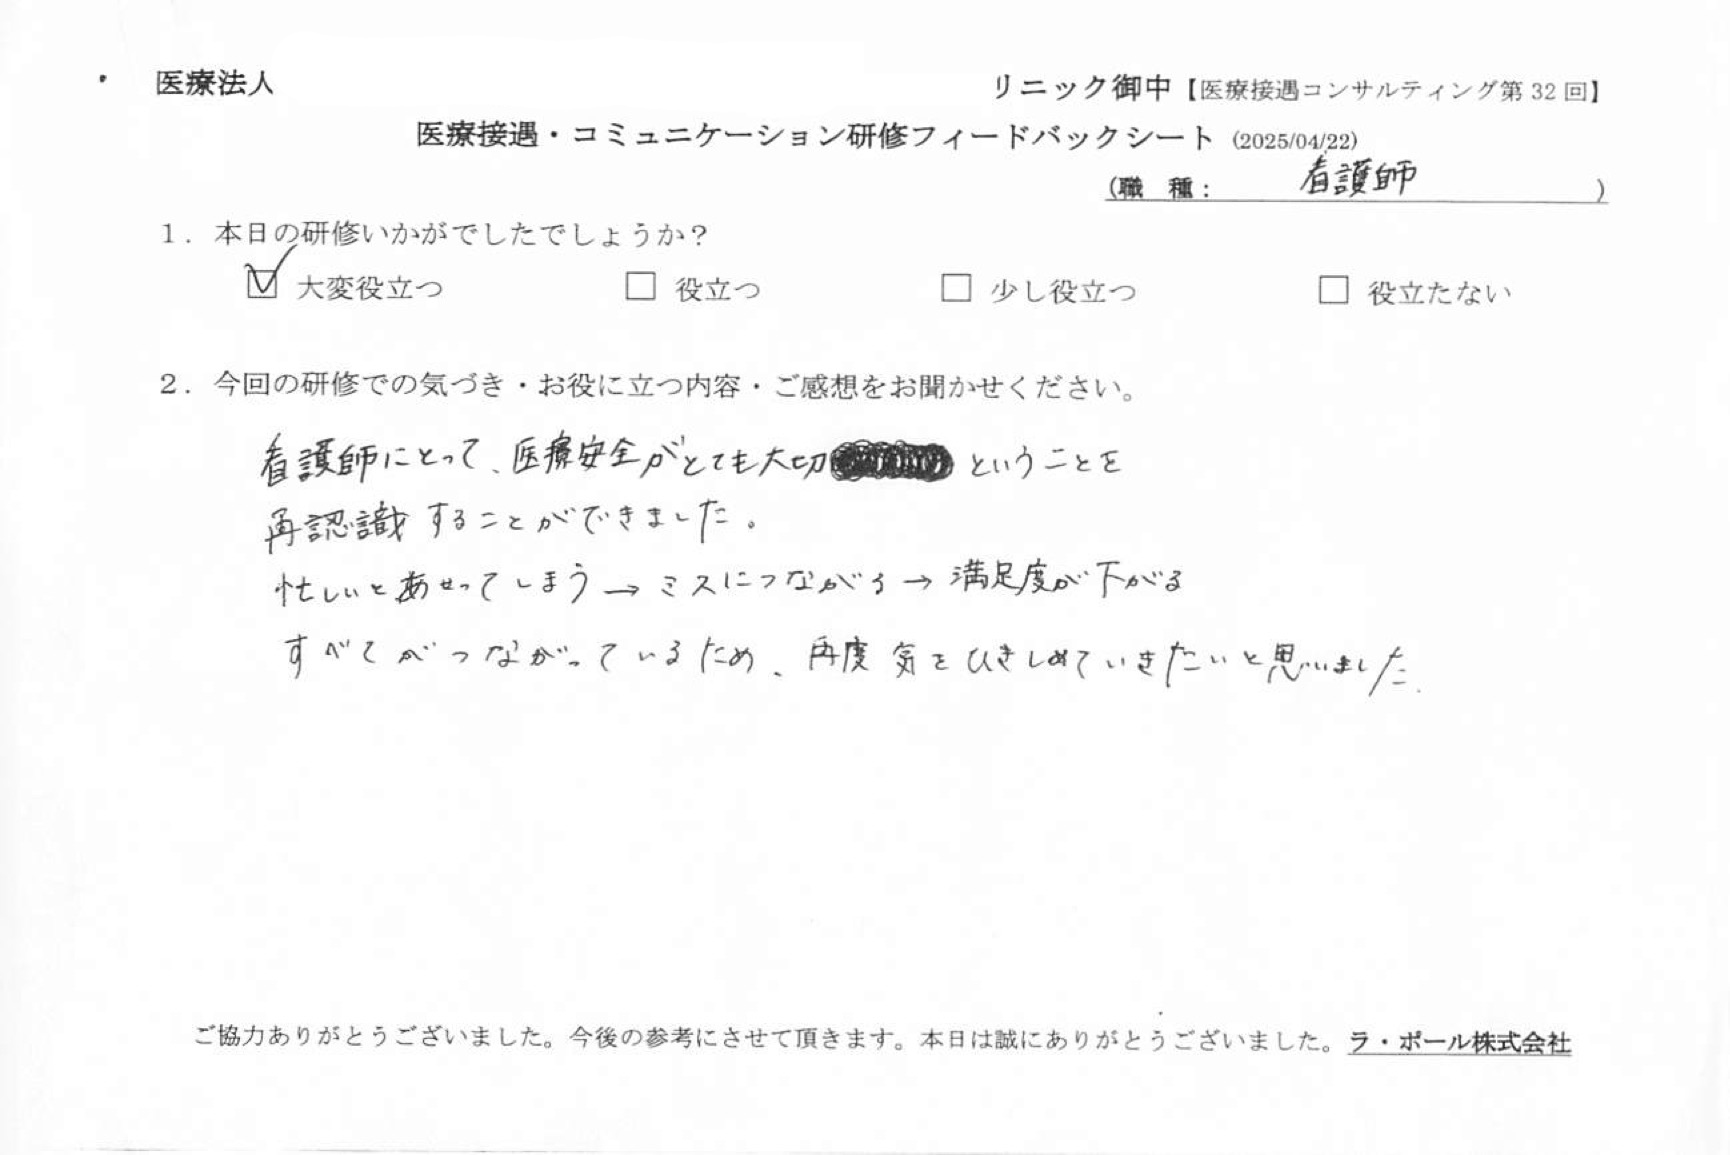 医療法人 リニック御中【医療接遇コンサルティング第 32 回】
医療接遇・コミュニケーション研修フィードバックシート (2025/04/22)
(職 種: 看護師 )
1. 本日の研修いかがでしたでしょうか?
☑ 大変役立つ □ 役立つ □ 少し役立つ □ 役立たない
2. 今回の研修での気づき・お役に立つ内容・ご感想をお聞かせください。
看護師にとって、医療安全がとても大切 ということを
再認識することができました。
忙しいとあせってしまう→ミスにつながる→満足度が下がる
すべてがつながっているため、再度気をひきしめていきたいと思いました.
ご協力ありがとうございました。今後の参考にさせて頂きます。本日は誠にありがとうございました。ラ・ポール株式会社